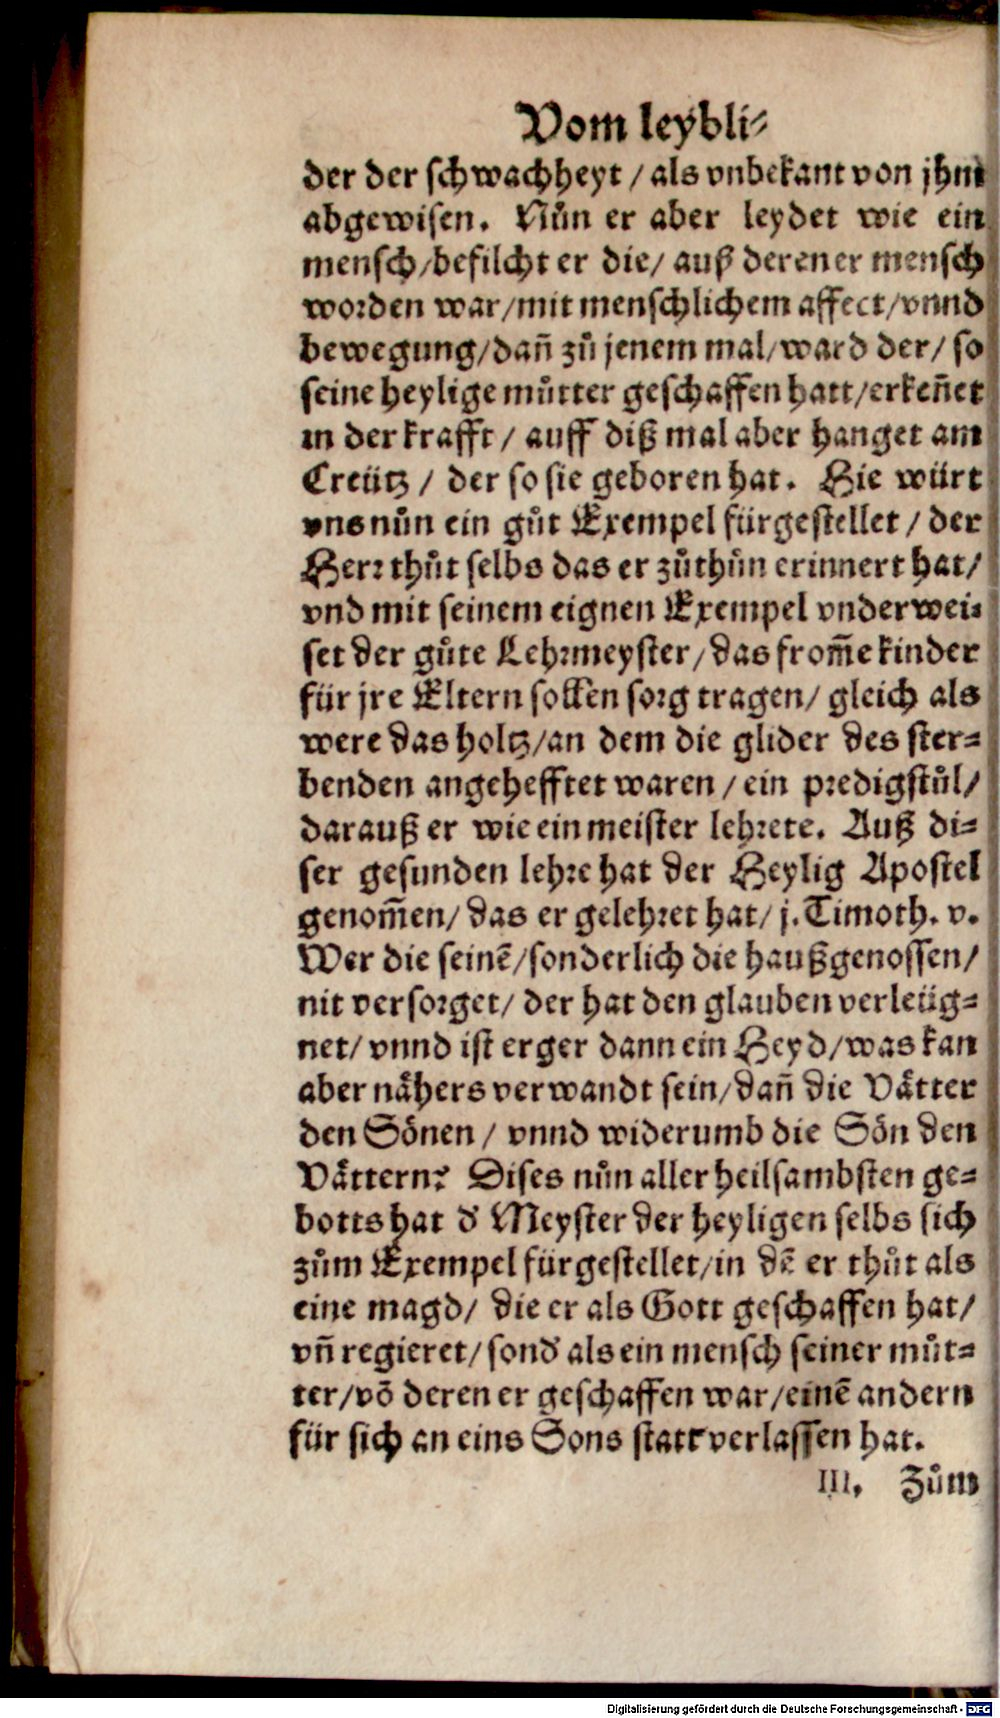 Vom leybli⸗
der der schwachheyt / als vnbekant von jhm
abgewisen. Nůn er aber leydet wie ein
mensch / befilcht er die / auß deren er mensch
worden war / mit menschlichem affect / vnnd
bewegung / dañ zů jenem mal / ward der / so
seine heylige můtter geschaffen hatt / erkeñet
in der krafft / auff diß mal aber hanget am
Creütz / der so sie geboren hat. Hie würt
vns nůn ein gůt Exempel fürgestellet / der
Herr thůt selbs das er zůthůn erinnert hat /
vnd mit seinem eignen Exempel vnderwei⸗
set der gůte Lehrmeyster / das from̃e kinder
für jre Eltern sollen sorg tragen / gleich als
were das holtz / an dem die glider des ster⸗
benden angehefftet waren / ein predigstůl /
darauß er wie ein meister lehrete. Auß di⸗
ser gesunden lehre hat der Heylig Apostel
genom̃en / das er gelehret hat / j. Timoth. v.
Wer die seinē / sonderlich die haußgenossen /
nit versorget / der hat den glauben verleüg⸗
net / vnnd ist erger dann ein Heyd / was kan
aber nähers verwandt sein / dañ die Vätter
den Sönen / vnnd widerumb die Sön den
Vättern? Dises nůn aller heilsambsten ge⸗
botts hat d' Meyster der heyligen selbs sich
zům Exempel fürgestellet / in dē er thůt als
eine magd / die er als Gott geschaffen hat /
vñ regieret / sond' als ein mensch seiner můt⸗
ter / vō deren er geschaffen war / einē andern
für sich an eins Sons statt verlassen hat.
III. Zům
Digitalisierung gefördert durch die Deutsche Forschungsgemeinschaft - DFG